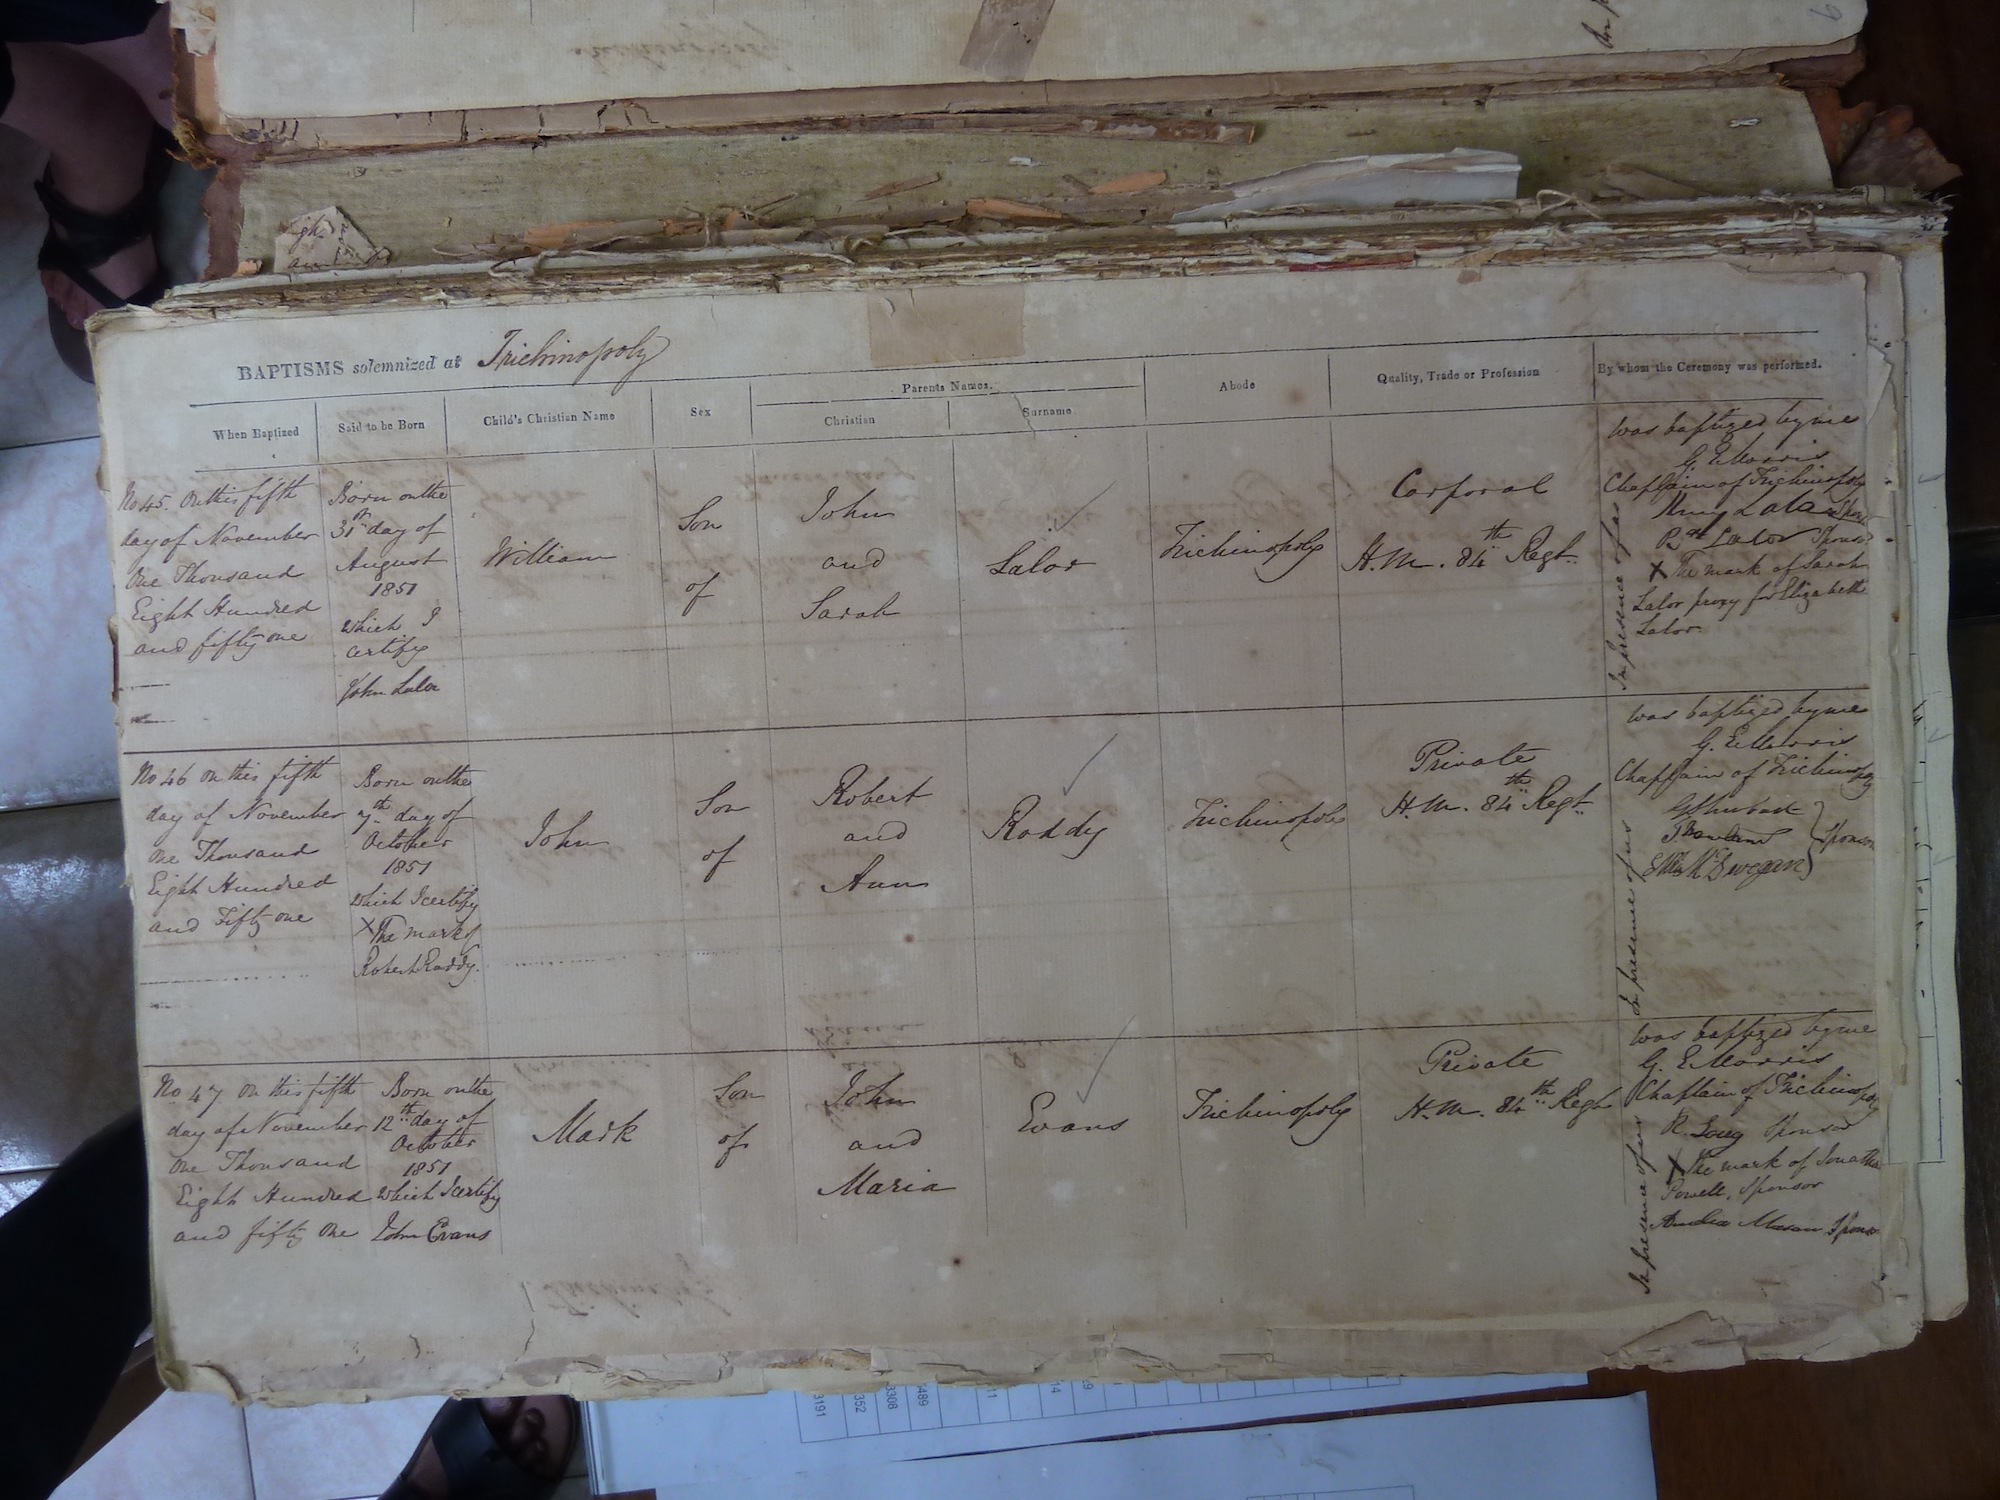 BAPTISMS solemnized at Trichinopoly
When Baptized
Said to be Born
Child's Christian Name
Sex
Parents Names.
Christian
Surname
Abode
Quality, Trade or Profession
By whom the Ceremony was performed.
No 45. On this fifth
day of November
One Thousand
Eight Hundred
and fifty one
Born on the
31st day of
August
1851
which I
certify
John Lalor
William
Son
of
John
and
Sarah
Lalor
Trichinopoly
Corporal
H.M. 84th Regt.
was baptized by me
G. E Morris
Chaplain of Trichinopoly
Lalor
Lalor Sponsor
X The mark of Sarah
Lalor proxy for Elizabeth
Lalor
In presence of us
No 46 on this fifth
day of November
One Thousand
Eight Hundred
and Fifty one
Born on the
7th day of
October
1851
which I certify
X The mark of
Robert Roddy.
John
Son
of
Robert
and
Ann
Roddy
Trichinopoly
Private
H.M. 84th Regt.
was baptized by me
G. E Morris
Chaplain of Trichinopoly
Sponsors
In presence of us
No 47 on this fifth
day of November
One Thousand
Eight Hundred
and fifty one
Born on the
12th day of
October
1851
which I certify
John Evans
Mark
Son
of
John
and
Maria
Evans
Trichinopoly
Private
H.M. 84th Regt
was baptized by me
G. E Morris
Chaplain of Trichinopoly
R. Long Sponsor
X The mark of Jonathan
Powell, Sponsor
Amelia Mason Sponsor
In presence of us
3191
352
3308
489
11
14